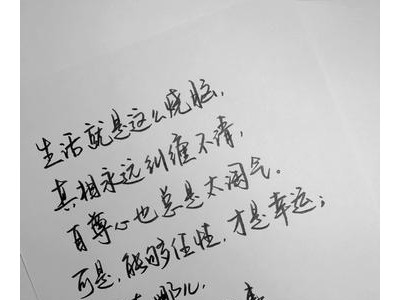 生活就是这么烧脑,
真相永远纠缠不清,
自尊心也总是太淘气。
可是,能够任性,才是幸运;
那儿,